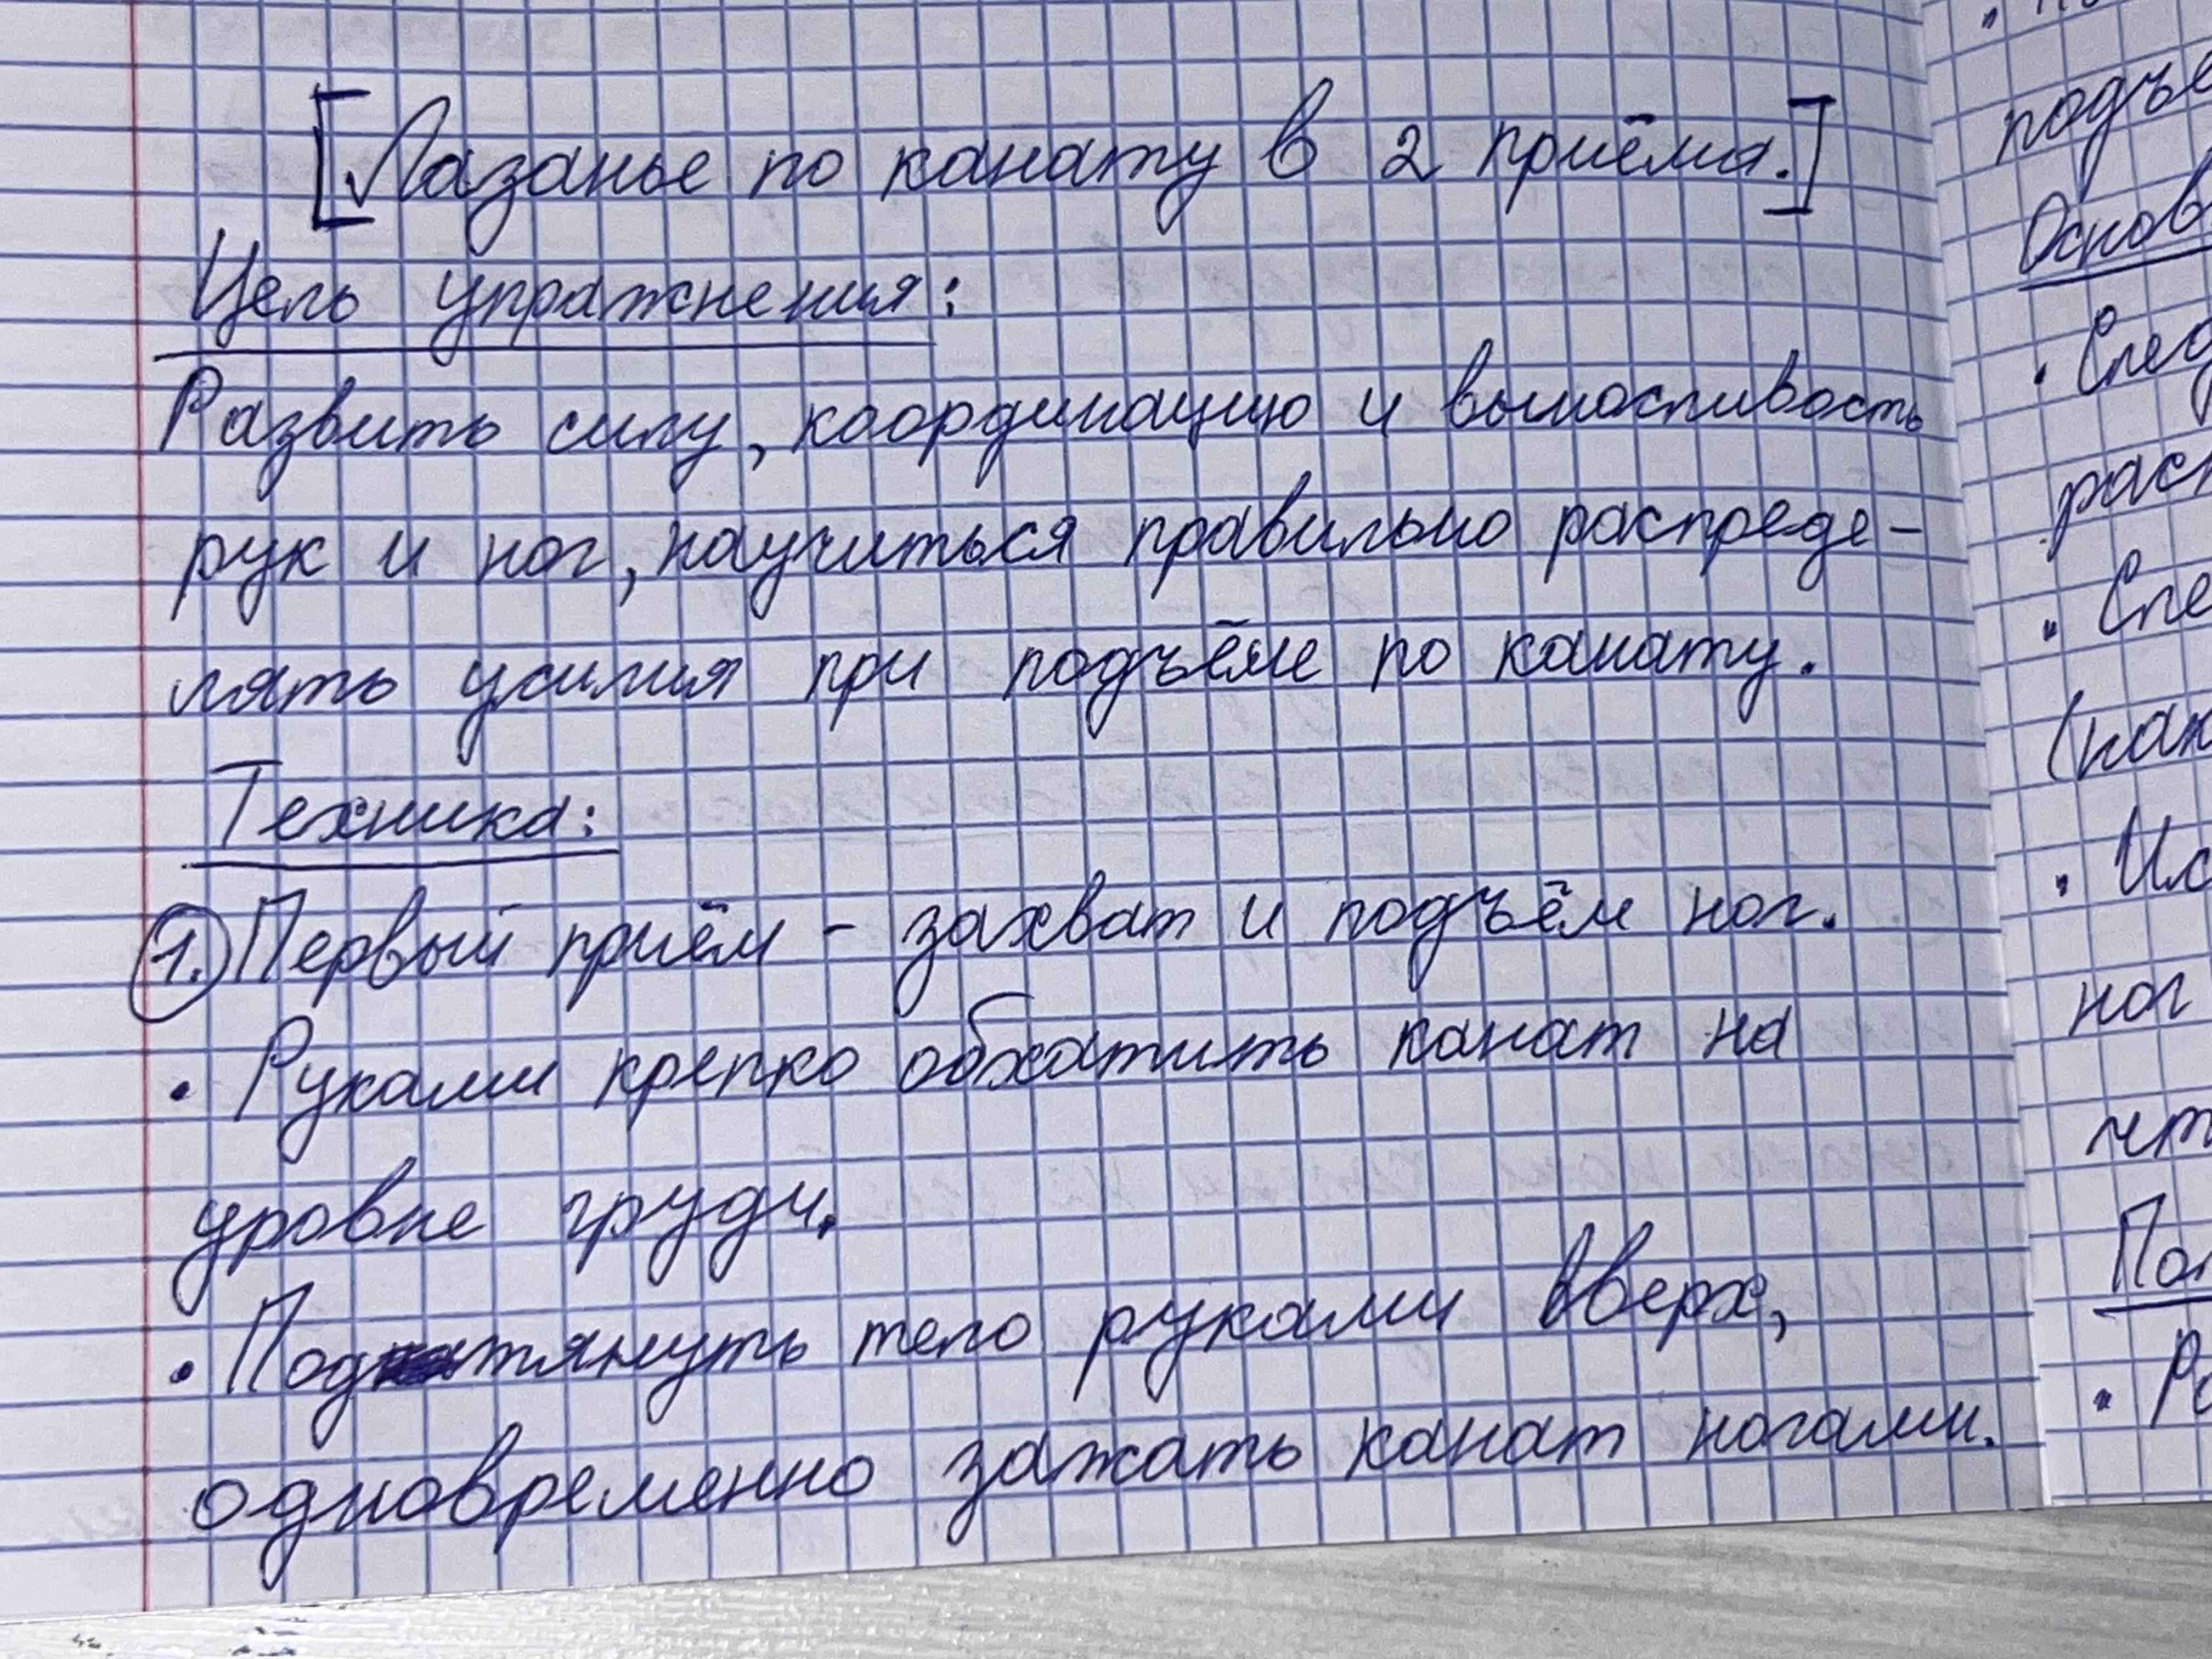 [Лазанье по канату в 2 приёма.]
Цель упражнения:
Развить силу, координацию и выносливость
рук и ног, научиться правильно распреде-
лять усилия при подъёме по канату.
Техника:
1. Первый приём - захват и подъём ног.
• Руками крепко обхатить канат на
уровне груди.
• Подтянуть тело руками вверх,
одновременно зажать канат ногами.
подъе
Основ
• След
расп
• Сле
(нак
• Ис
ног
чт
• Ра